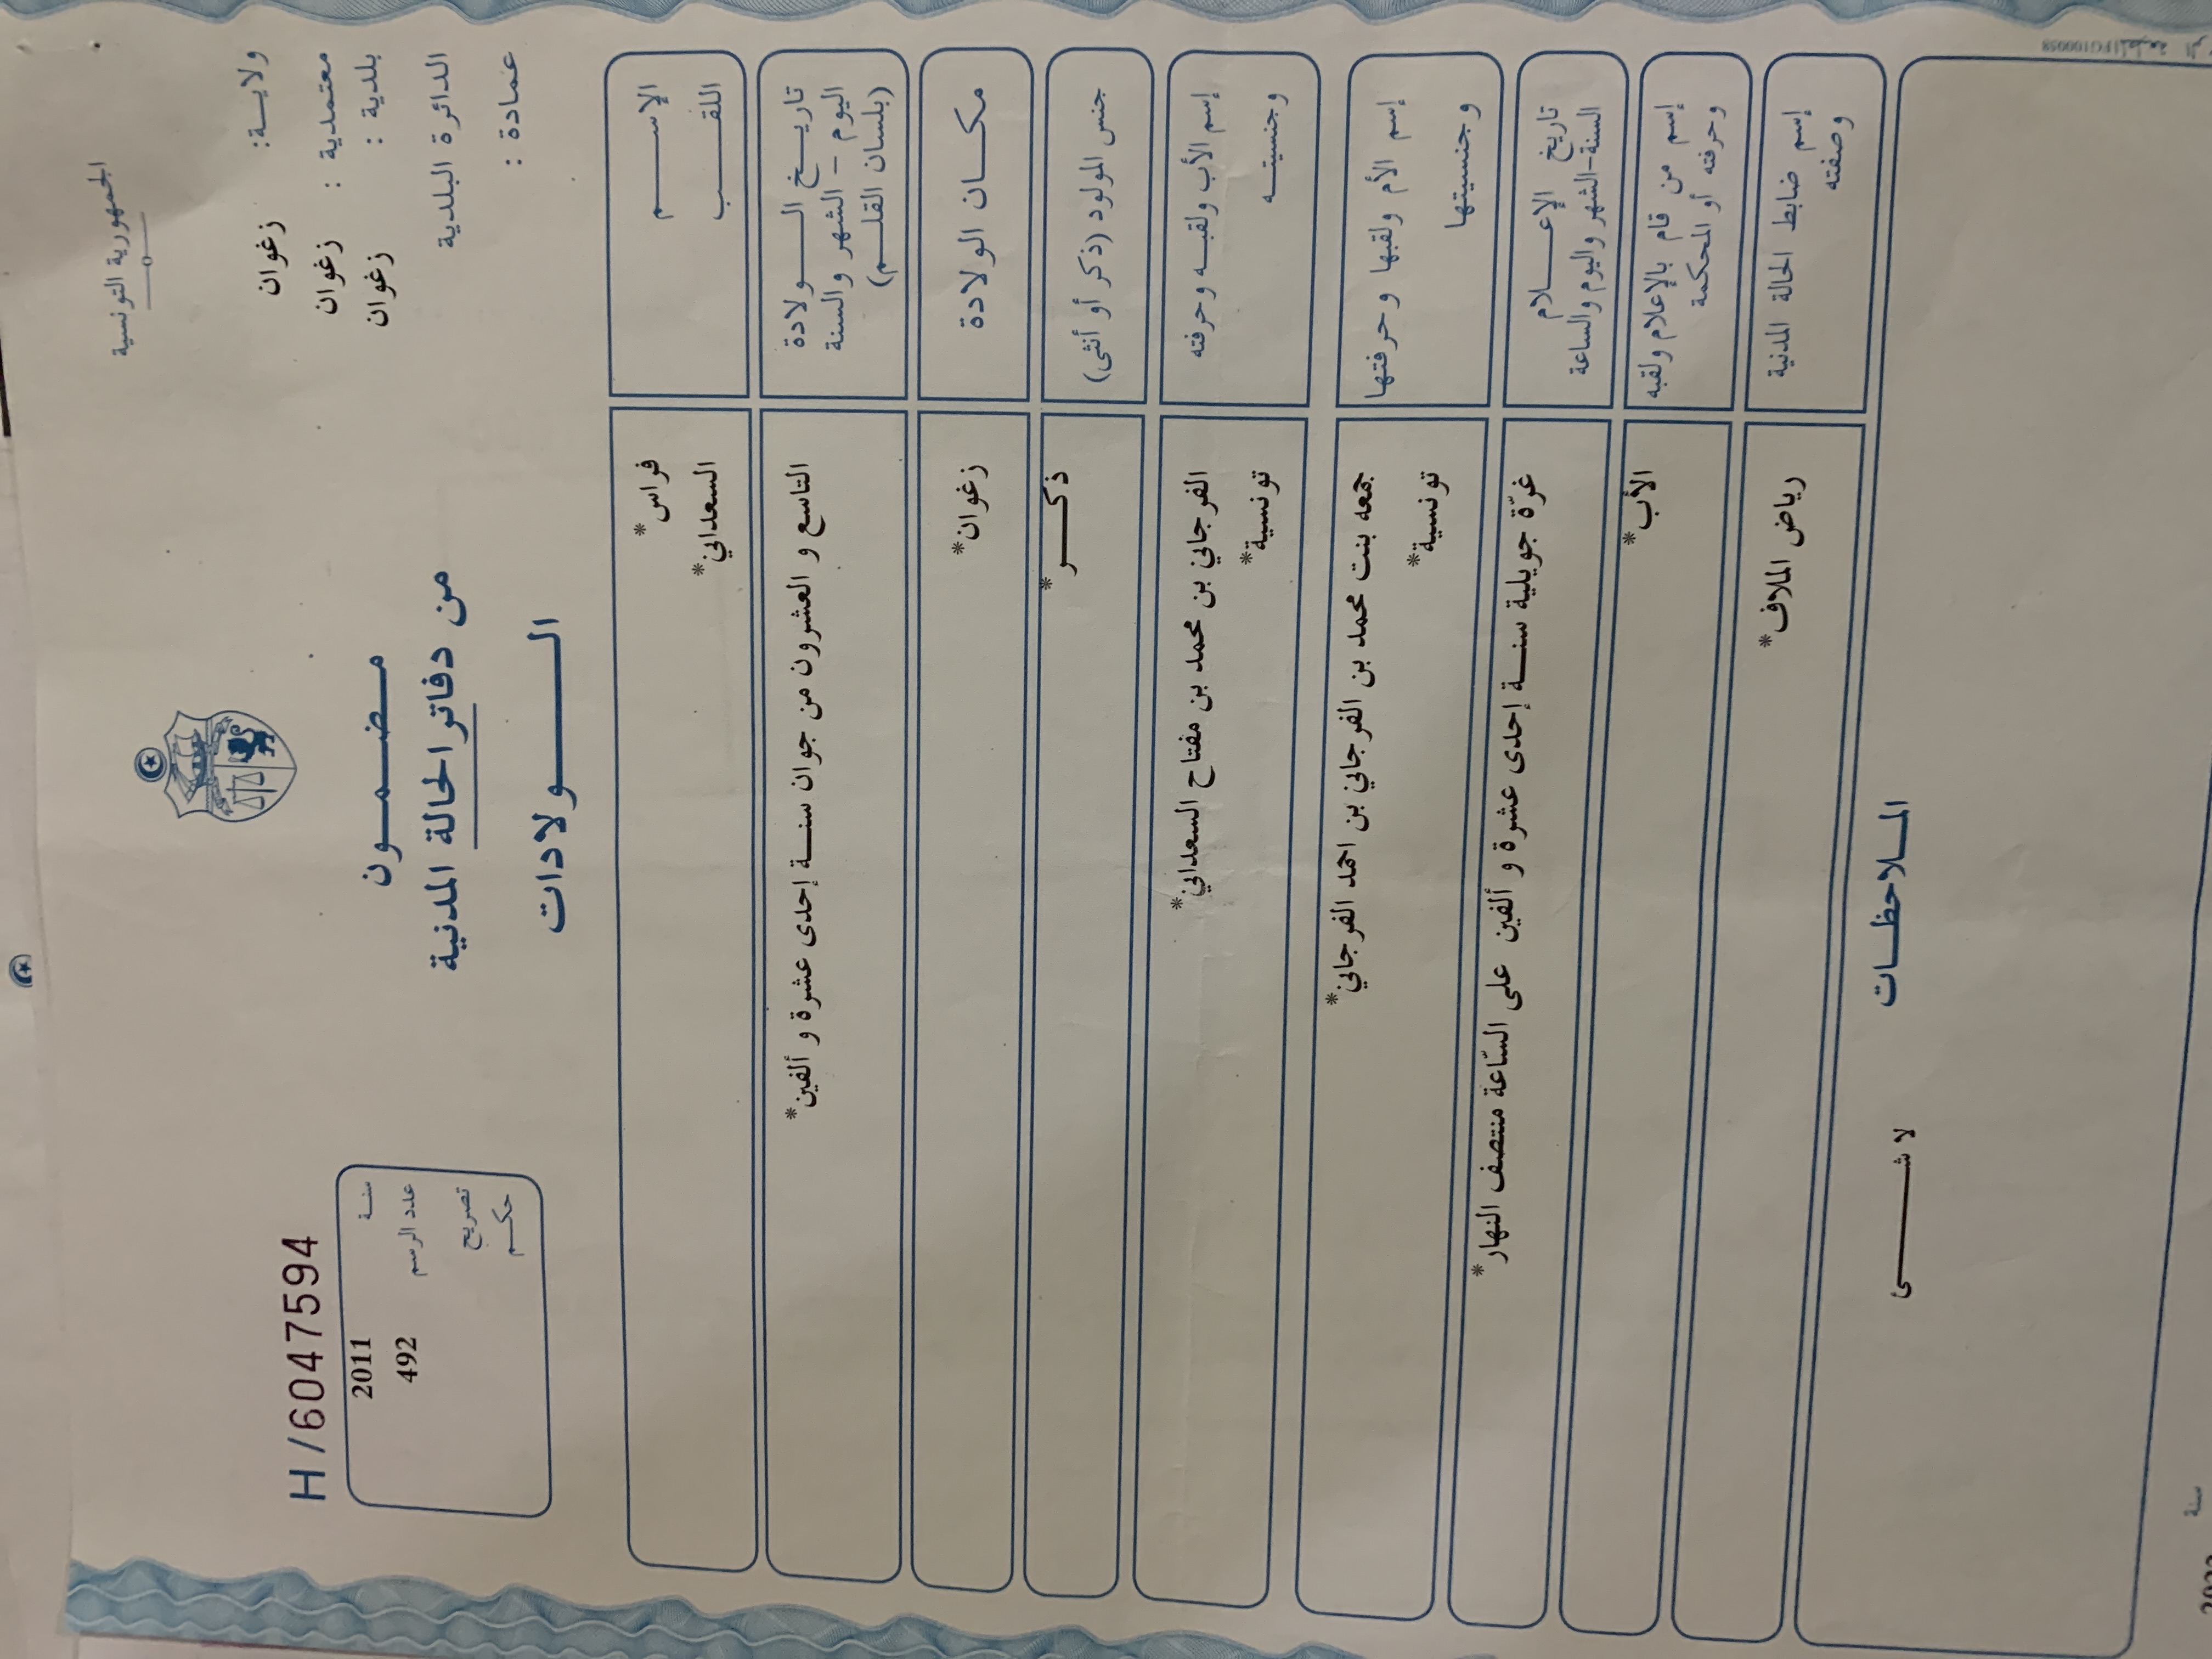 الجمهورية التونسية
ولايـــة: زغوان
معتمدية : زغوان
بلدية : زغوان
الدائرة البلدية
عمادة :
مـضـمـــون
من دفاتر الحالة المدنية
الــــولادات
H/6047594
سنـة 2011
عدد الرسم 492
تصريح
حكــم
الإســـــم فراس*
اللقـــــب السعداني*
تاريـــخ الــــولادة
اليوم - الشهر والسنة
(بلسان القلــم)
التاسع و العشرون من جوان سنـــة إحدى عشرة و ألفين*
مكـــان الولادة زغوان*
جنس المولود (ذكر أو أنثى) ذكـــر*
إسم الأب ولقبـه وحرفته الفرجاني بن محمد بن مفتاح السعداني*
وجنسيتــه تونسية*
إسم الأم ولقبها وحرفتها جمعه بنت محمد بن الفرجاني بن احمد الفرجاني*
وجنسيتها تونسية*
تاريخ الإعـــلام
السنة-الشهر واليوم والساعة
غرّة جويلية سنـــة إحدى عشرة و ألفين على السّاعة منتصف النهار*
إسم من قام بالإعلام ولقبه
وحرفته أو المحكمة
الأب*
إسم ضابط الحالة المدنية
وصفته
رياض الملاف*
المــلاحظــات
لا شـــــى
سنة